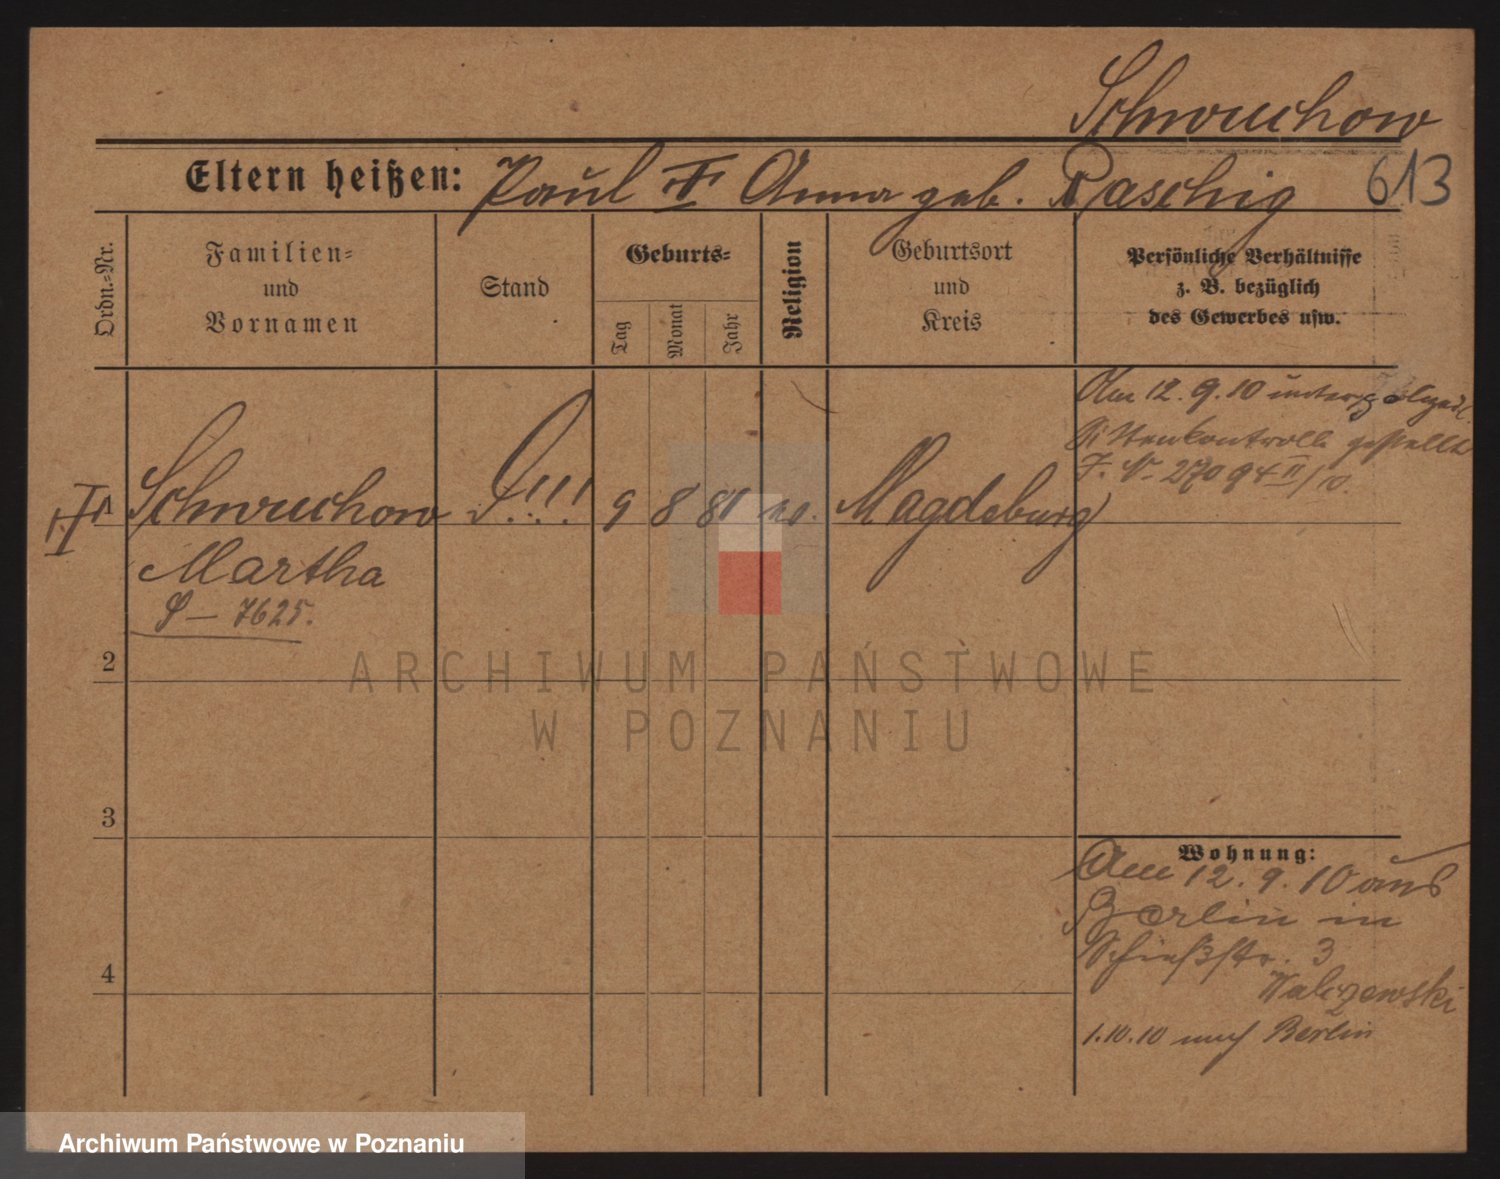 Schwuchow
Eltern heißen: Paul ✝ Anna geb. Raschig 613
Ordn.-Nr.
Familien-
und
Vornamen
Stand
Geburts-
Tag
Monat
Jahr
Religion
Geburtsort
und
Kreis
Persönliche Verhältnisse
z. B. bezüglich
des Gewerbes usw.
Am 12. 9. 10 unter polizeil.
Sittenkontrolle gestellt
J. N. 27094 II/10.
1 Schwuchow !!! 9 8 81 Magdeburg
Martha
S – 7625.
2
3
4
Wohnung:
Am 12. 9. 10 aus
Berlin in
Schießstr. 3
Walczewski
1.10.10 nach Berlin
ARCHIWUM PAŃSTWOWE
W POZNANIU
Archiwum Państwowe w Poznaniu